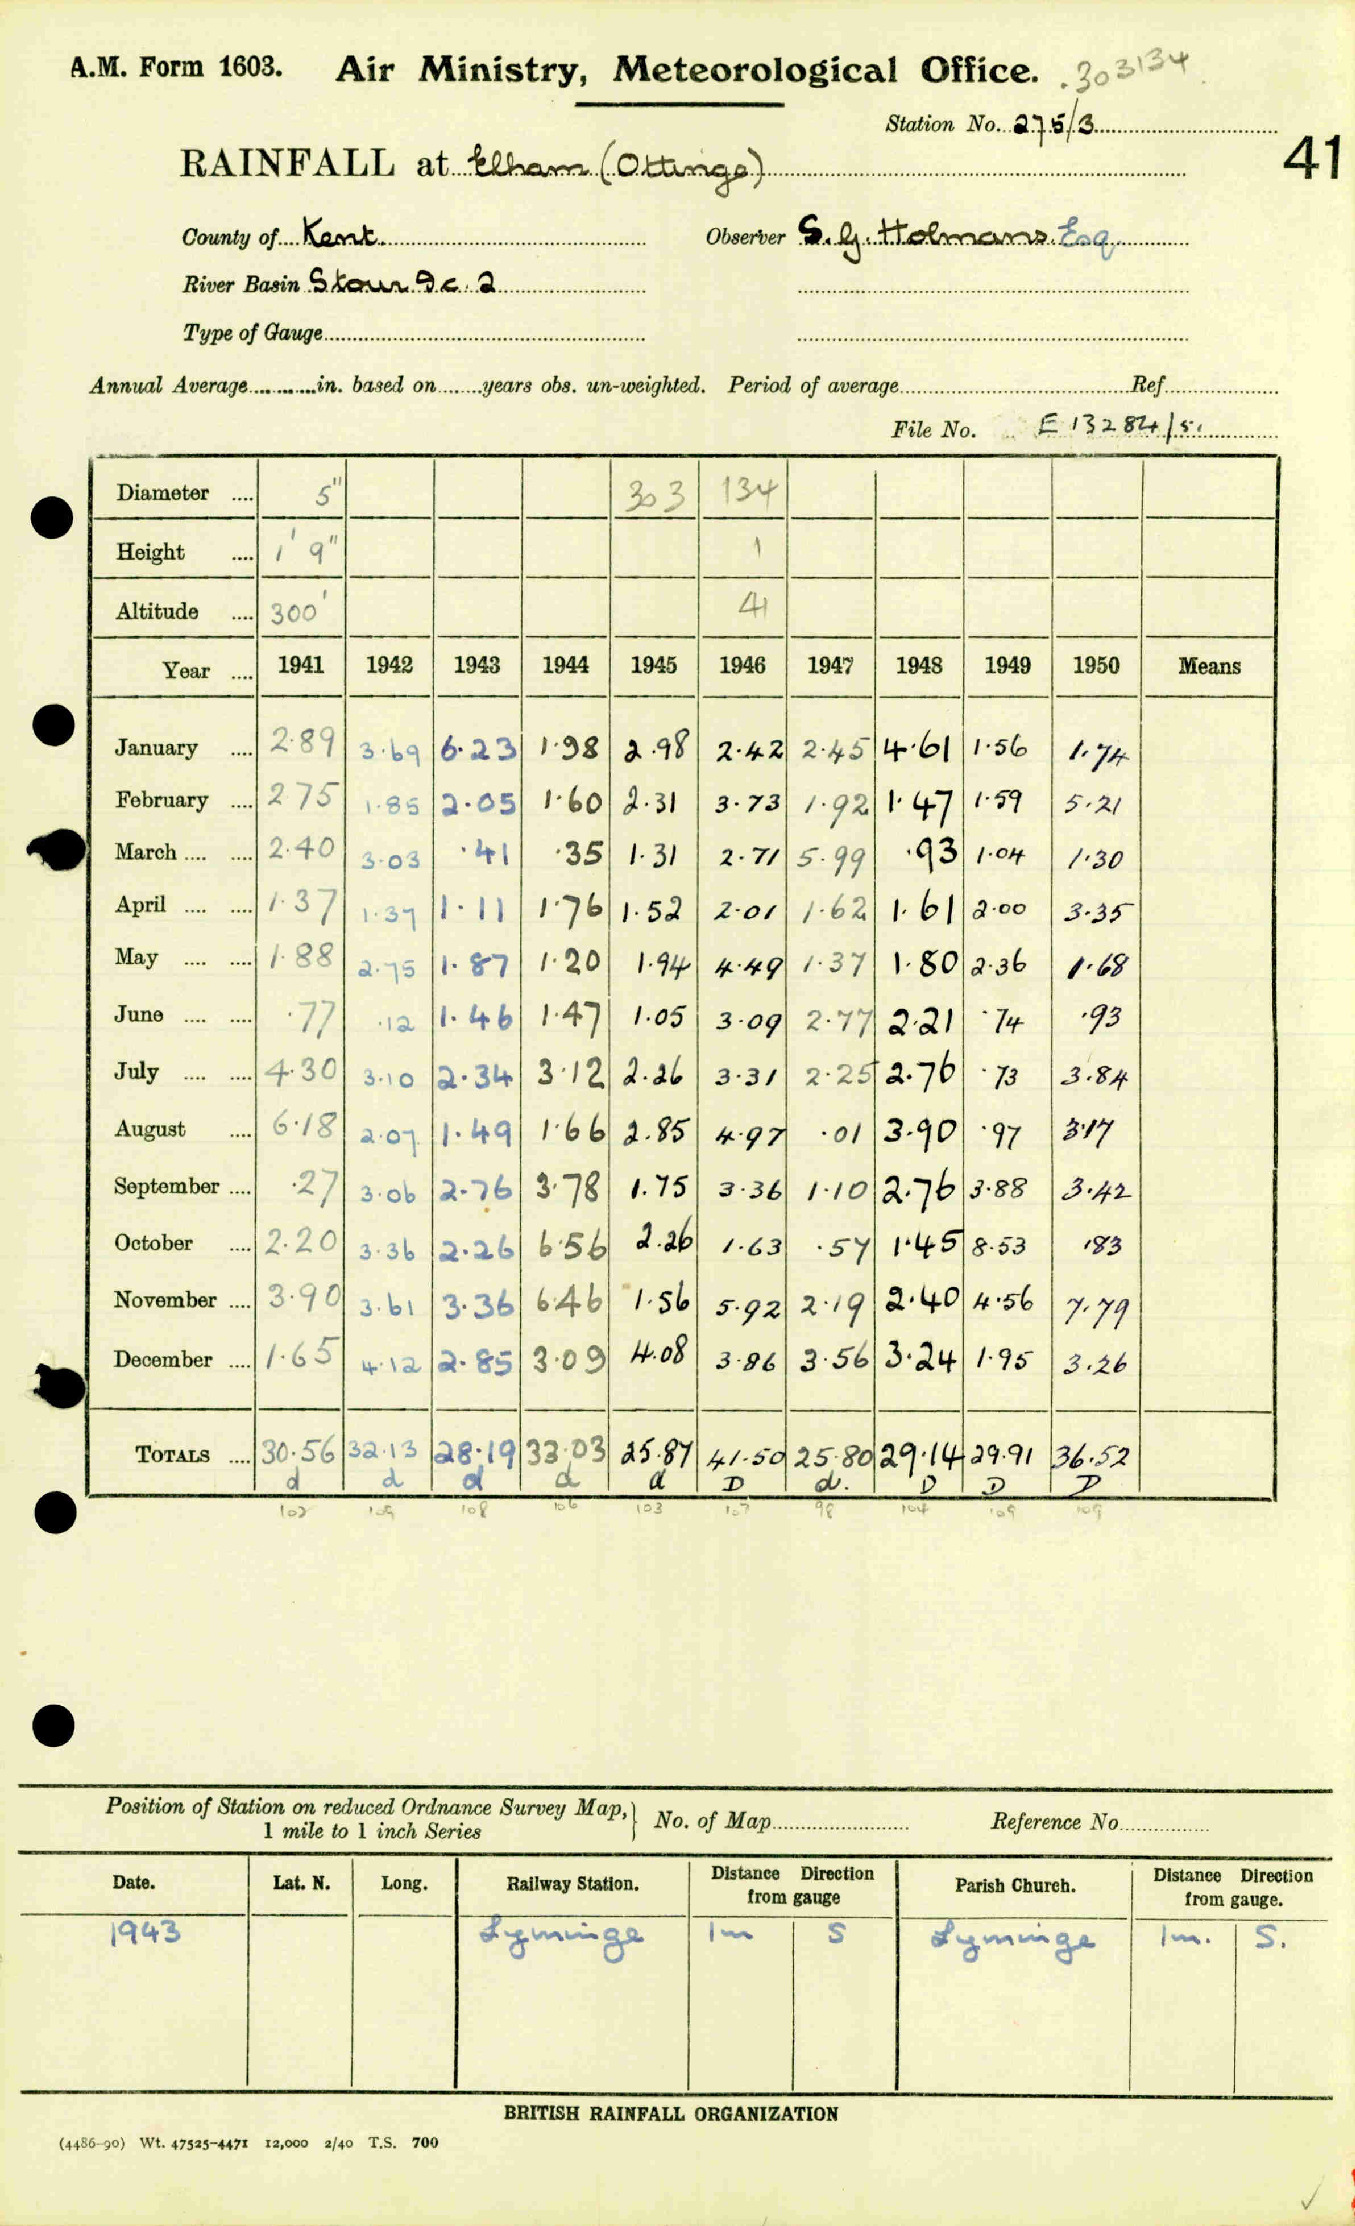 A.M. Form 1603. Air Ministry, Meteorological Office. 303134
Station No. 275/3
41
RAINFALL at Elham (Ottinge)
County of Kent Observer S. G. Holmans Esq
River Basin Stour 9c.2
Type of Gauge
Annual Average in. based on years obs. un-weighted. Period of average Ref
File No. E 13284/51
Diameter 5" 303 134
Height 1' 9" 1
Altitude 300' 41
Year 1941 1942 1943 1944 1945 1946 1947 1948 1949 1950 Means
January 2.89 3.69 6.23 1.98 2.98 2.42 2.45 4.61 1.56 1.74
February 2 75 1.85 2.05 1.60 2.31 3.73 1.92 1.47 1.59 5.21
March 2.40 3.03 .41 .35 1.31 2.71 5.99 .93 1.04 1.30
April 1.37 1.37 1.11 1.76 1.52 2.01 1.62 1.61 2.00 3.35
May 1.88 2.75 1.87 1.20 1.94 4.49 1.37 1.80 2.36 1.68
June .77 .12 1.46 1.47 1.05 3.09 2.77 2.21 .74 .93
July 4.30 3.10 2.34 3.12 2.26 3.31 2.25 2.76 .73 3.84
August 6.18 2.07 1.49 1.66 2.85 4.97 .01 3.90 .97 3.17
September .27 3.06 2.76 3.78 1.75 3.36 1.10 2.76 3.88 3.42
October 2.20 3.36 2.26 6.56 2.26 1.63 .57 1.45 8.53 .83
November 3.90 3.61 3.36 6.46 1.56 5.92 2.19 2.40 4.56 7.79
December 1.65 4.12 2.85 3.09 4.08 3.86 3.56 3.24 1.95 3.26
TOTALS 30.56 32.13 28.19 33.03 25.87 41.50 25.80 29.14 29.91 36.52
d d d d d D d. D D D
102 109 108 106 103 107 98 104 109 109
Position of Station on reduced Ordnance Survey Map, No. of Map Reference No
1 mile to 1 inch Series
Date. Lat. N. Long. Railway Station. Distance Direction from gauge Parish Church. Distance Direction from gauge.
1943 Lyminge 1m S Lyminge 1m. S.
BRITISH RAINFALL ORGANIZATION
(4486-90) Wt. 47525-4471 12,000 2/40 T.S. 700